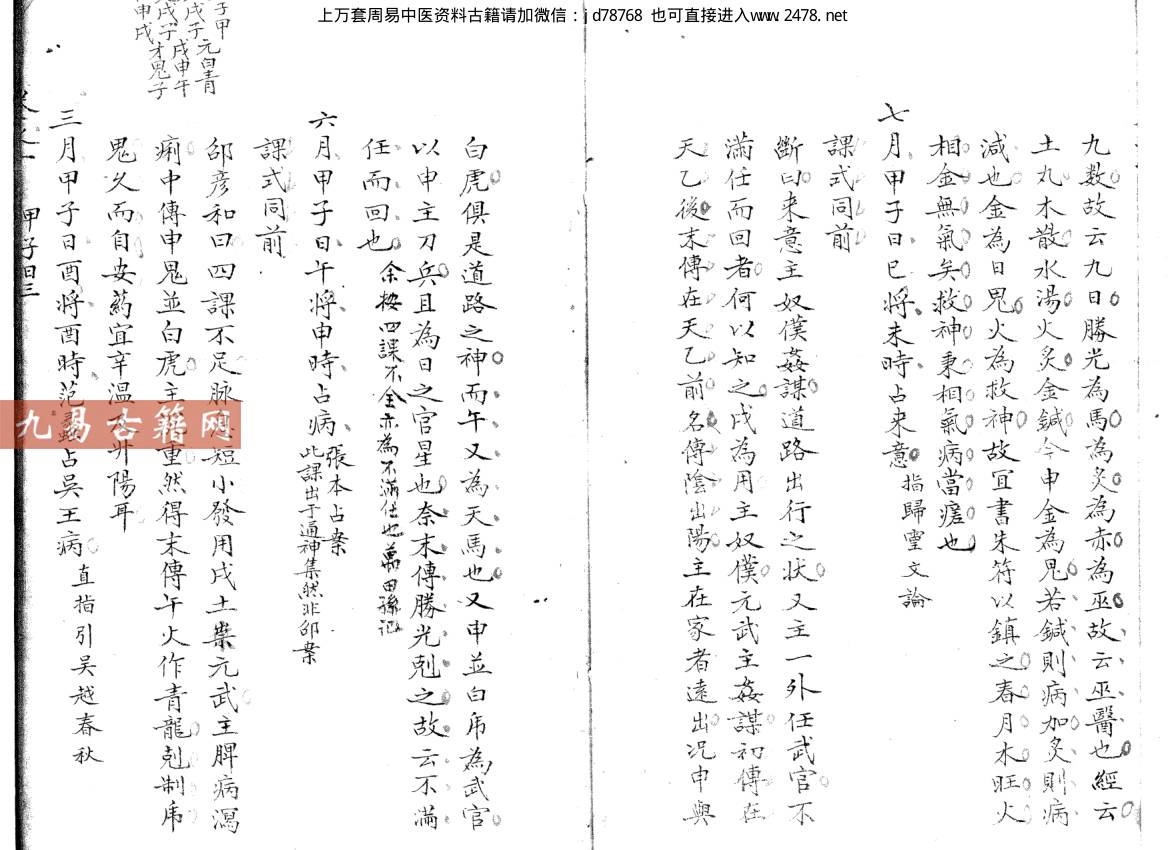 上万套周易中医资料古籍请加微信：jd78768 也可直接进入www.2478.net
九数故云九日勝光為馬為炙為赤為巫故云巫醫也經云
土丸木散水湯火炙金鍼今申金為鬼若鍼則病加炙則病
減也金為日鬼火為救神故宜書朱符以鎮之春月木旺火
相金無氣矣救神秉相氣病當瘥也
七月甲子日巳將未時占來意 指歸靈文論
課式同前
斷曰來意主奴僕姦謀道路出行之狀又主一外任武官不
滿任而回者何以知之戌為用主奴僕元武主姦謀初傳在
天乙後末傳在天乙前名傳陰出陽主在家者遠出况申與
白虎俱是道路之神而午又為天馬也又申並白虎為武官
以申主刀兵且為日之官星也奈末傳勝光剋之故云不滿
任而回也 余按四課不全亦為不滿任也
六月甲子日午將申時占病 張本占案
此課出于通神集然非邵案
課式同前
邵彦和曰四課不足脉息短小發用戌土乘元武主脾病瀉
痢中傳申鬼並白虎主 重然得末傳午火作青龍剋制虎
鬼久而自安藥宜辛温 升陽耳
三月甲子日酉將酉時范蠡占吴王病 直指引吴越春秋
甲子日三
九易古籍网